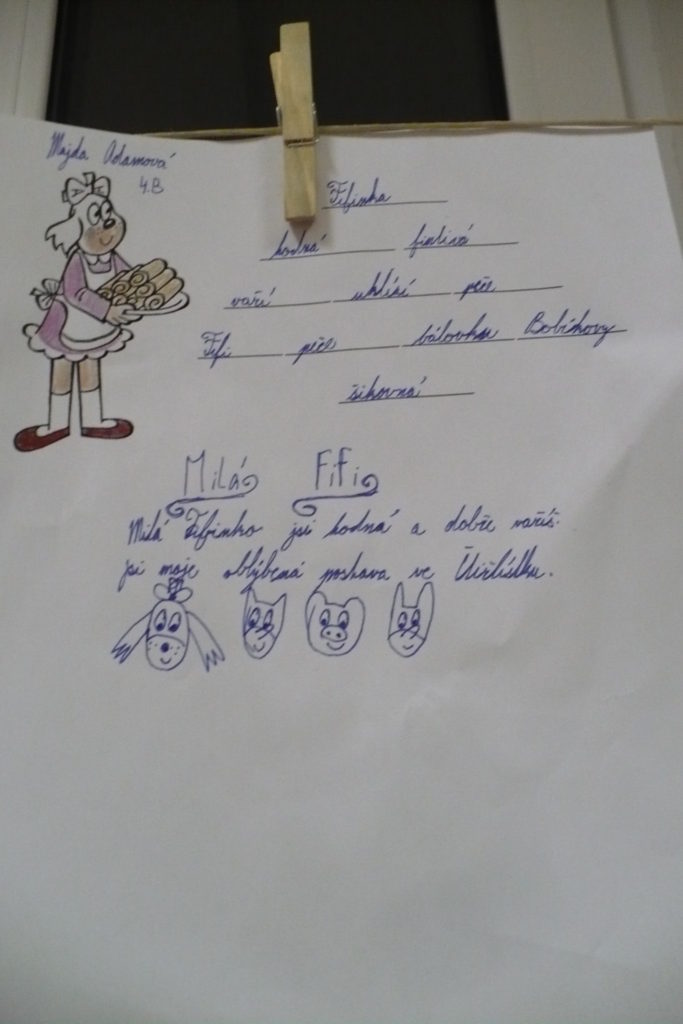 Majda Adamová
4.B
Fifinka
hodná fintivá
vaří uklízí peče
Fifi peče bábovku Bobíkovy
šikovná
Milá Fifi
Milá Fifinko jsi hodná a dobře vaříš.
jsi moje oblýbená postava ve Čtiřlístku.